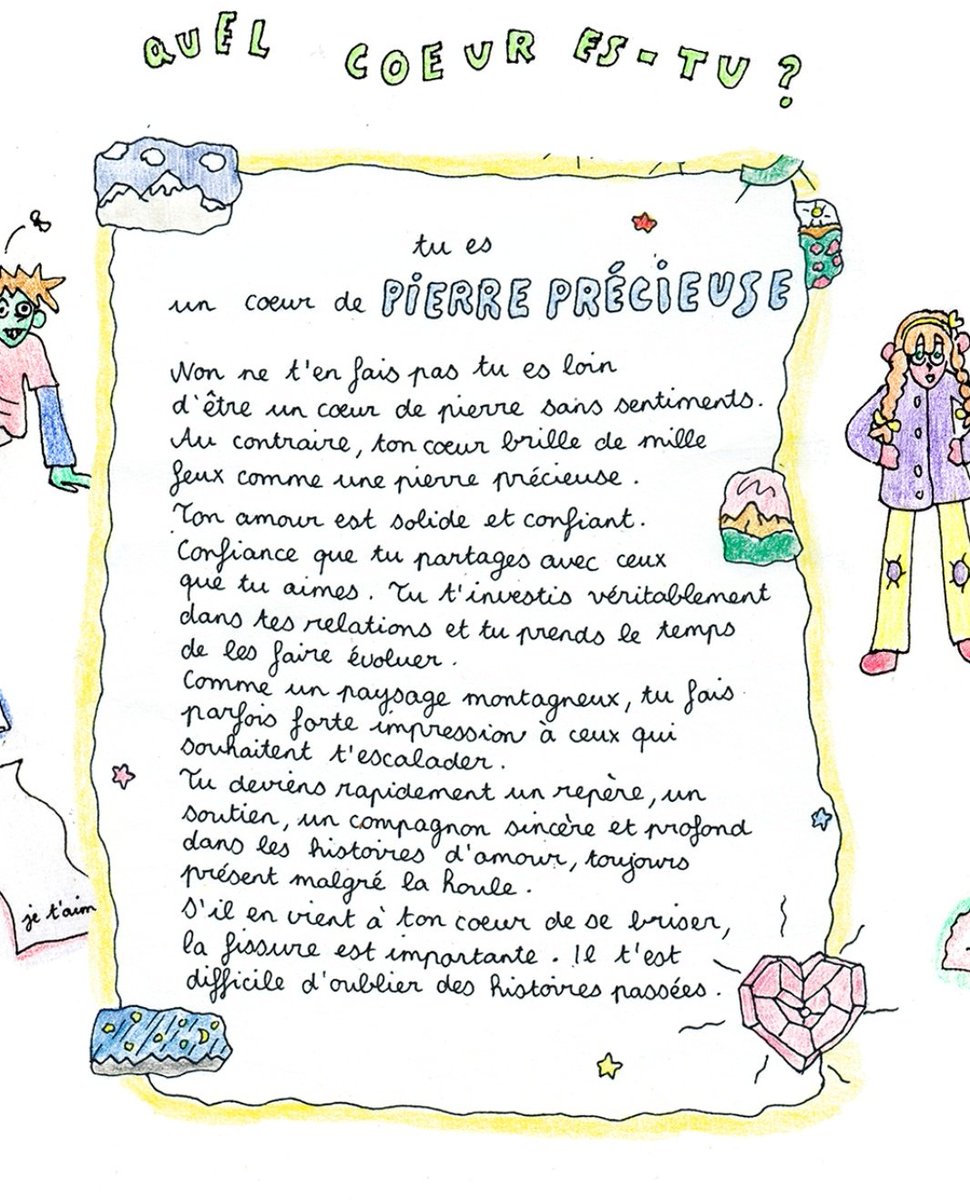 QUEL COEUR ES-TU ?
tu es
un coeur de PIERRE PRÉCIEUSE
Non ne t'en fais pas tu es loin
d'être un cœur de pierre sans sentiments.
Au contraire, ton cœur brille de mille
feux comme une pierre précieuse.
Ton amour est solide et confiant.
Confiance que tu partages avec ceux
que tu aimes. Tu t'investis véritablement
dans tes relations et tu prends le temps
de les faire évoluer.
Comme un paysage montagneux, tu fais
parfois forte impression à ceux qui
souhaitent t'escalader.
Tu deviens rapidement un repère, un
soutien, un compagnon sincère et profond
dans les histoires d'amour, toujours
présent malgré la houle.
S'il en vient à ton coeur de se briser,
la fissure est importante. Il t'est
difficile d'oublier des histoires passées.
je t'aim